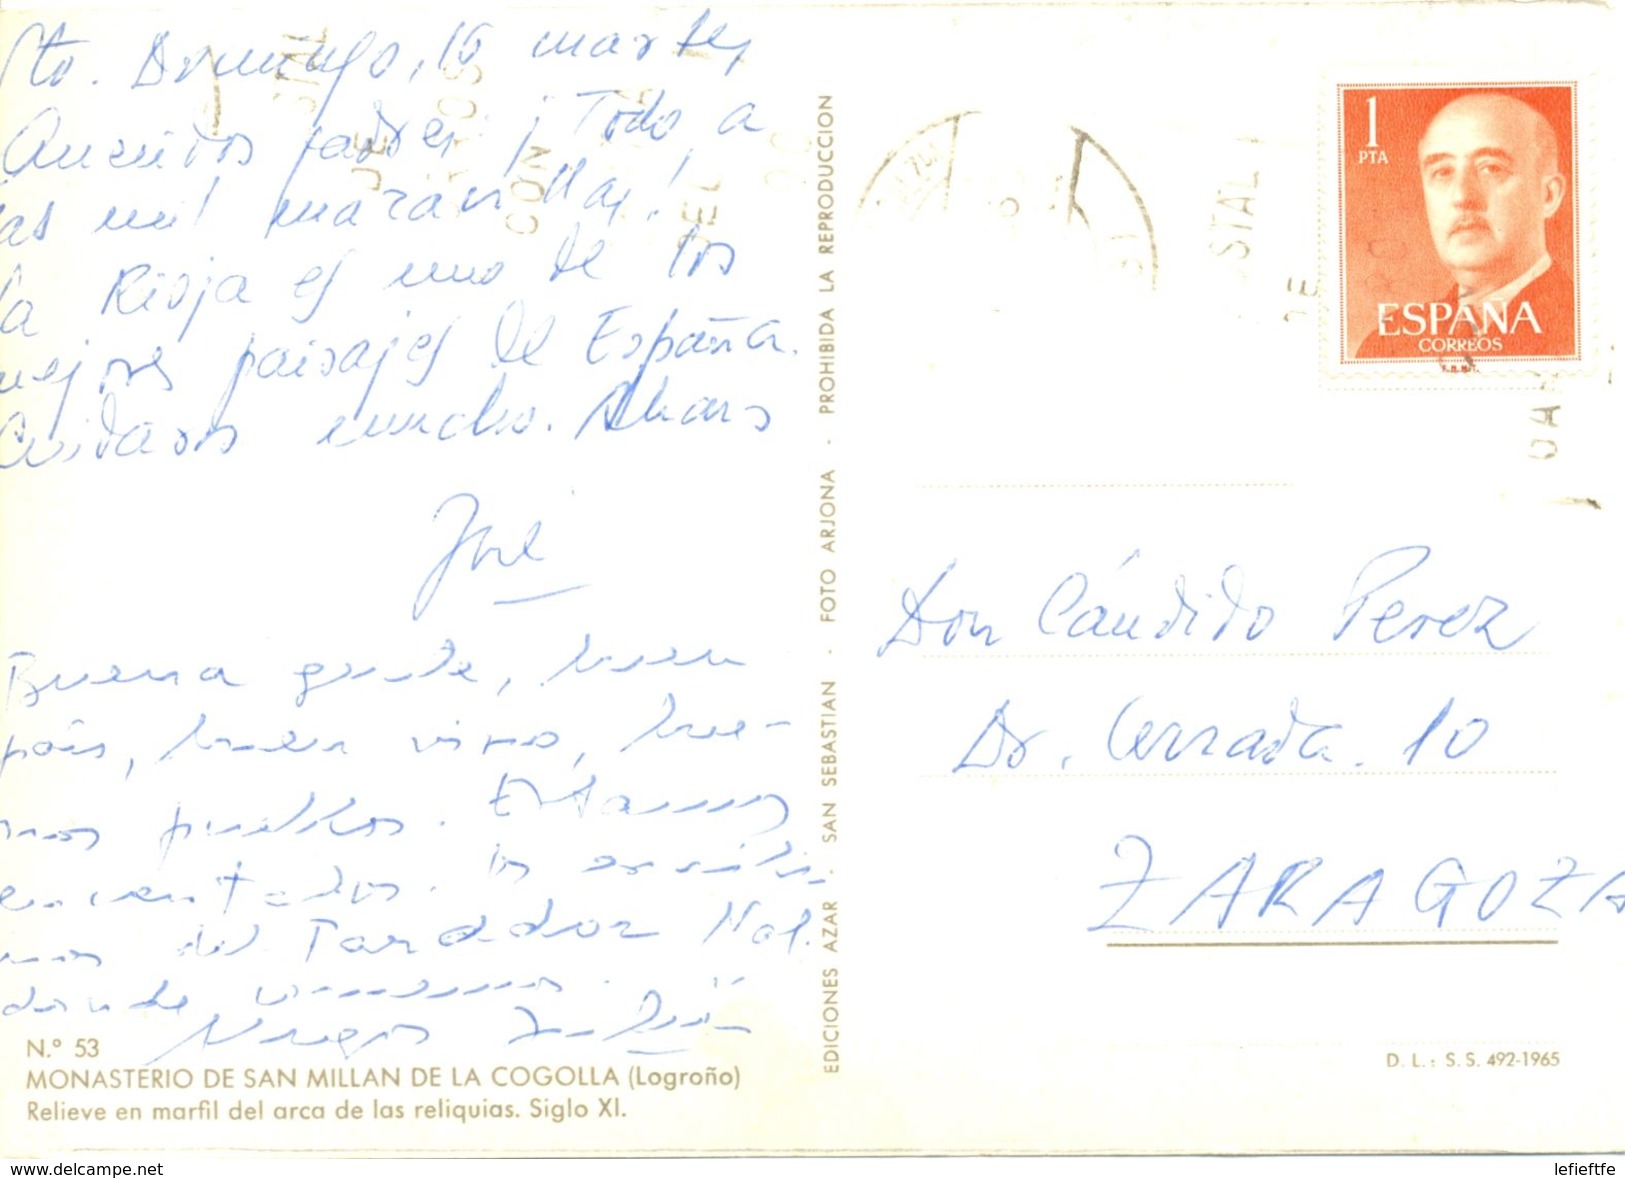 Sto. Domingo, 16 martes
Queridos padres ¡Todo a
las mil maravillas!
La Rioja es uno de los
mejores paisajes de España.
Cuidaros mucho. Abrazos
José
Buena gente, buen
país, buen vino, bue-
nos pueblos. Estamos
encantados. Os escribi-
mos del Parador Nal.
donde
N.º 53
MONASTERIO DE SAN MILLAN DE LA COGOLLA (Logroño)
Relieve en marfil del arca de las reliquias. Siglo XI.
EDICIONES AZAR · SAN SEBASTIAN · FOTO ARJONA · PROHIBIDA LA REPRODUCCION
1
PTA
ESPAÑA
CORREOS
F.N.M.T.
Don Cándido Perez
Dr. Cerrada. 10
ZARAGOZA
D. L.: S. S. 492-1965
www.delcampe.net
lefieftfe